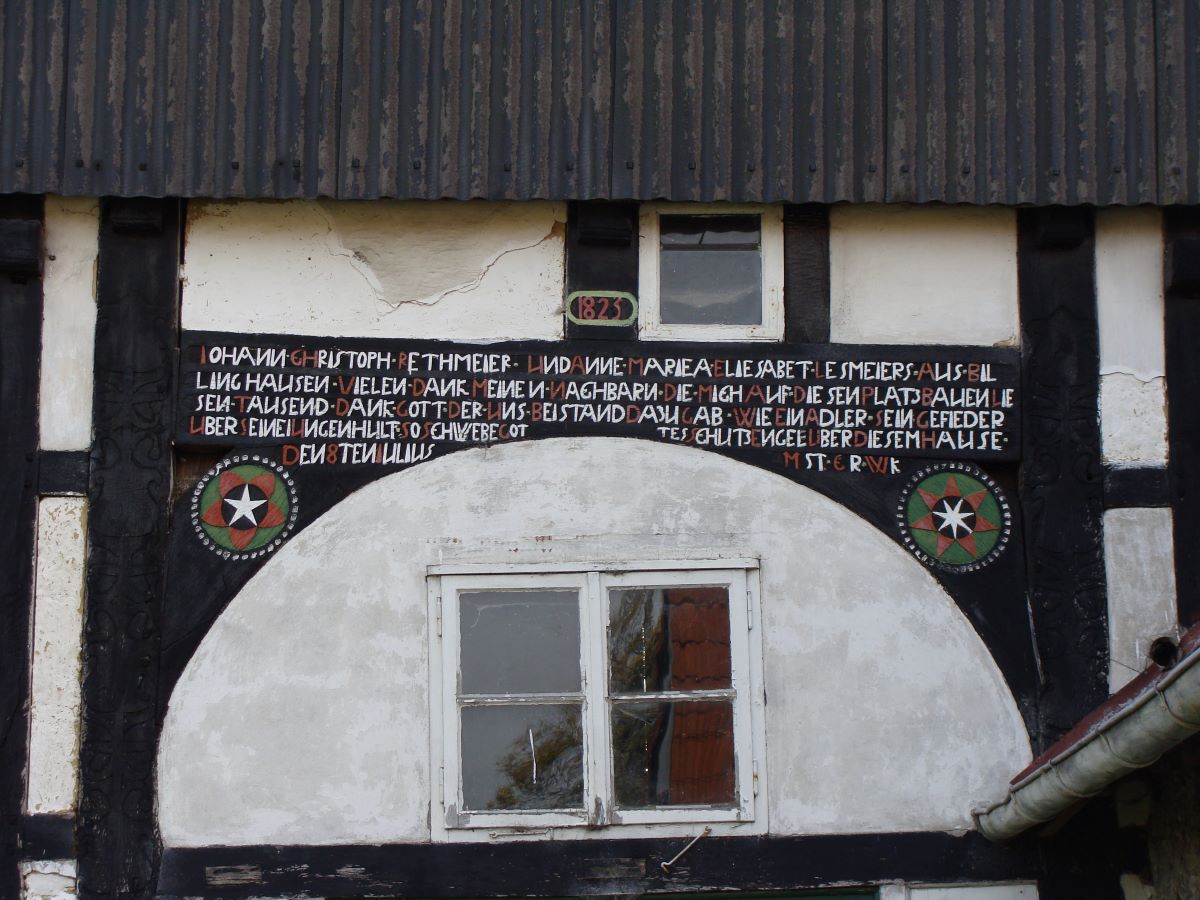 1825
IOHANN·CHRISTOPH·RETHMEIER·UNDANNE·MARIEA·ELIESABET·LESMEIERS·AUS·BIL
LINGHAUSEN·VIELEN·DANK·MEINEN·NAGHBARN·DIE·MICH·AUF·DIESEN·PLATSBAUENLIE
SEN·TAUSEND·DANK·GOTT·DER·UNS·BEISTANDDAZUGAB·WIE·EINADLER·SEIN·GEFIEDER
UBERSEINEIUNGENHULT·SOSCHWEBEGOT TESSCHUTSENGELUBERDIESEMHAUSE·
DEN8TENIULIUS MST·E·R·WK